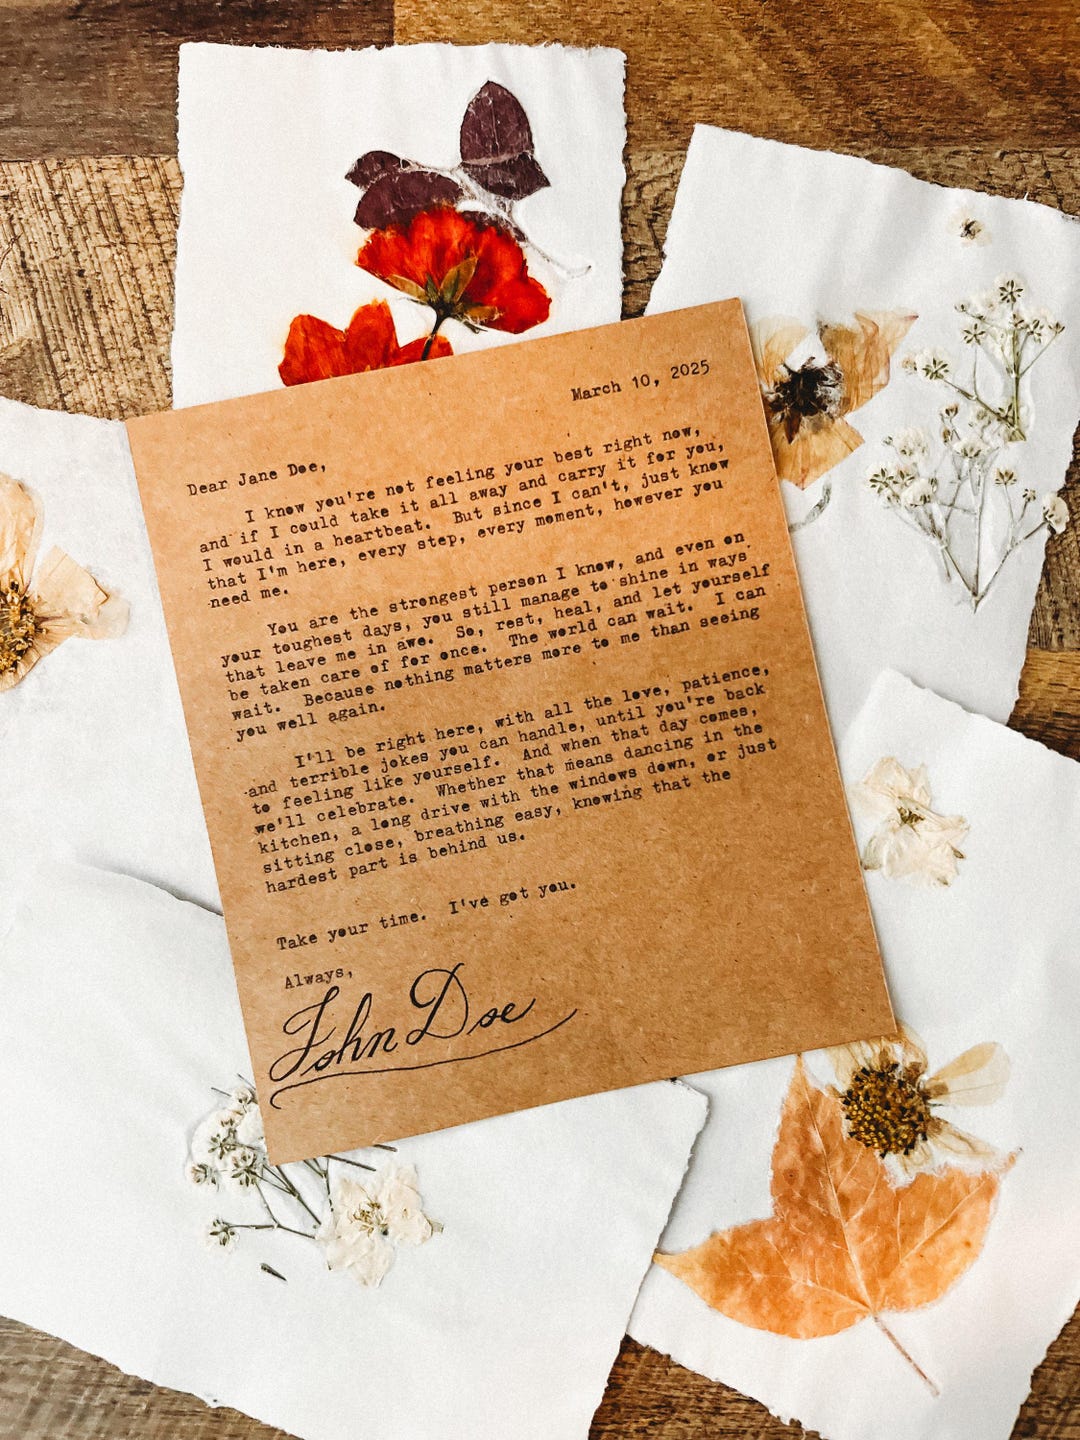 March 10, 2025
Dear Jane Doe,
I know you're not feeling your best right now,
and if I could take it all away and carry it for you,
I would in a heartbeat. But since I can't, just know
that I'm here, every step, every moment, however you
need me.
You are the strongest person I know, and even on
your toughest days, you still manage to shine in ways
that leave me in awe. So, rest, heal, and let yourself
be taken care of for once. The world can wait. I can
wait. Because nothing matters more to me than seeing
you well again.
I'll be right here, with all the love, patience,
and terrible jokes you can handle, until you're back
to feeling like yourself. And when that day comes,
we'll celebrate. Whether that means dancing in the
kitchen, a long drive with the windows down, or just
sitting close, breathing easy, knowing that the
hardest part is behind us.
Take your time. I've got you.
Always,
John Doe